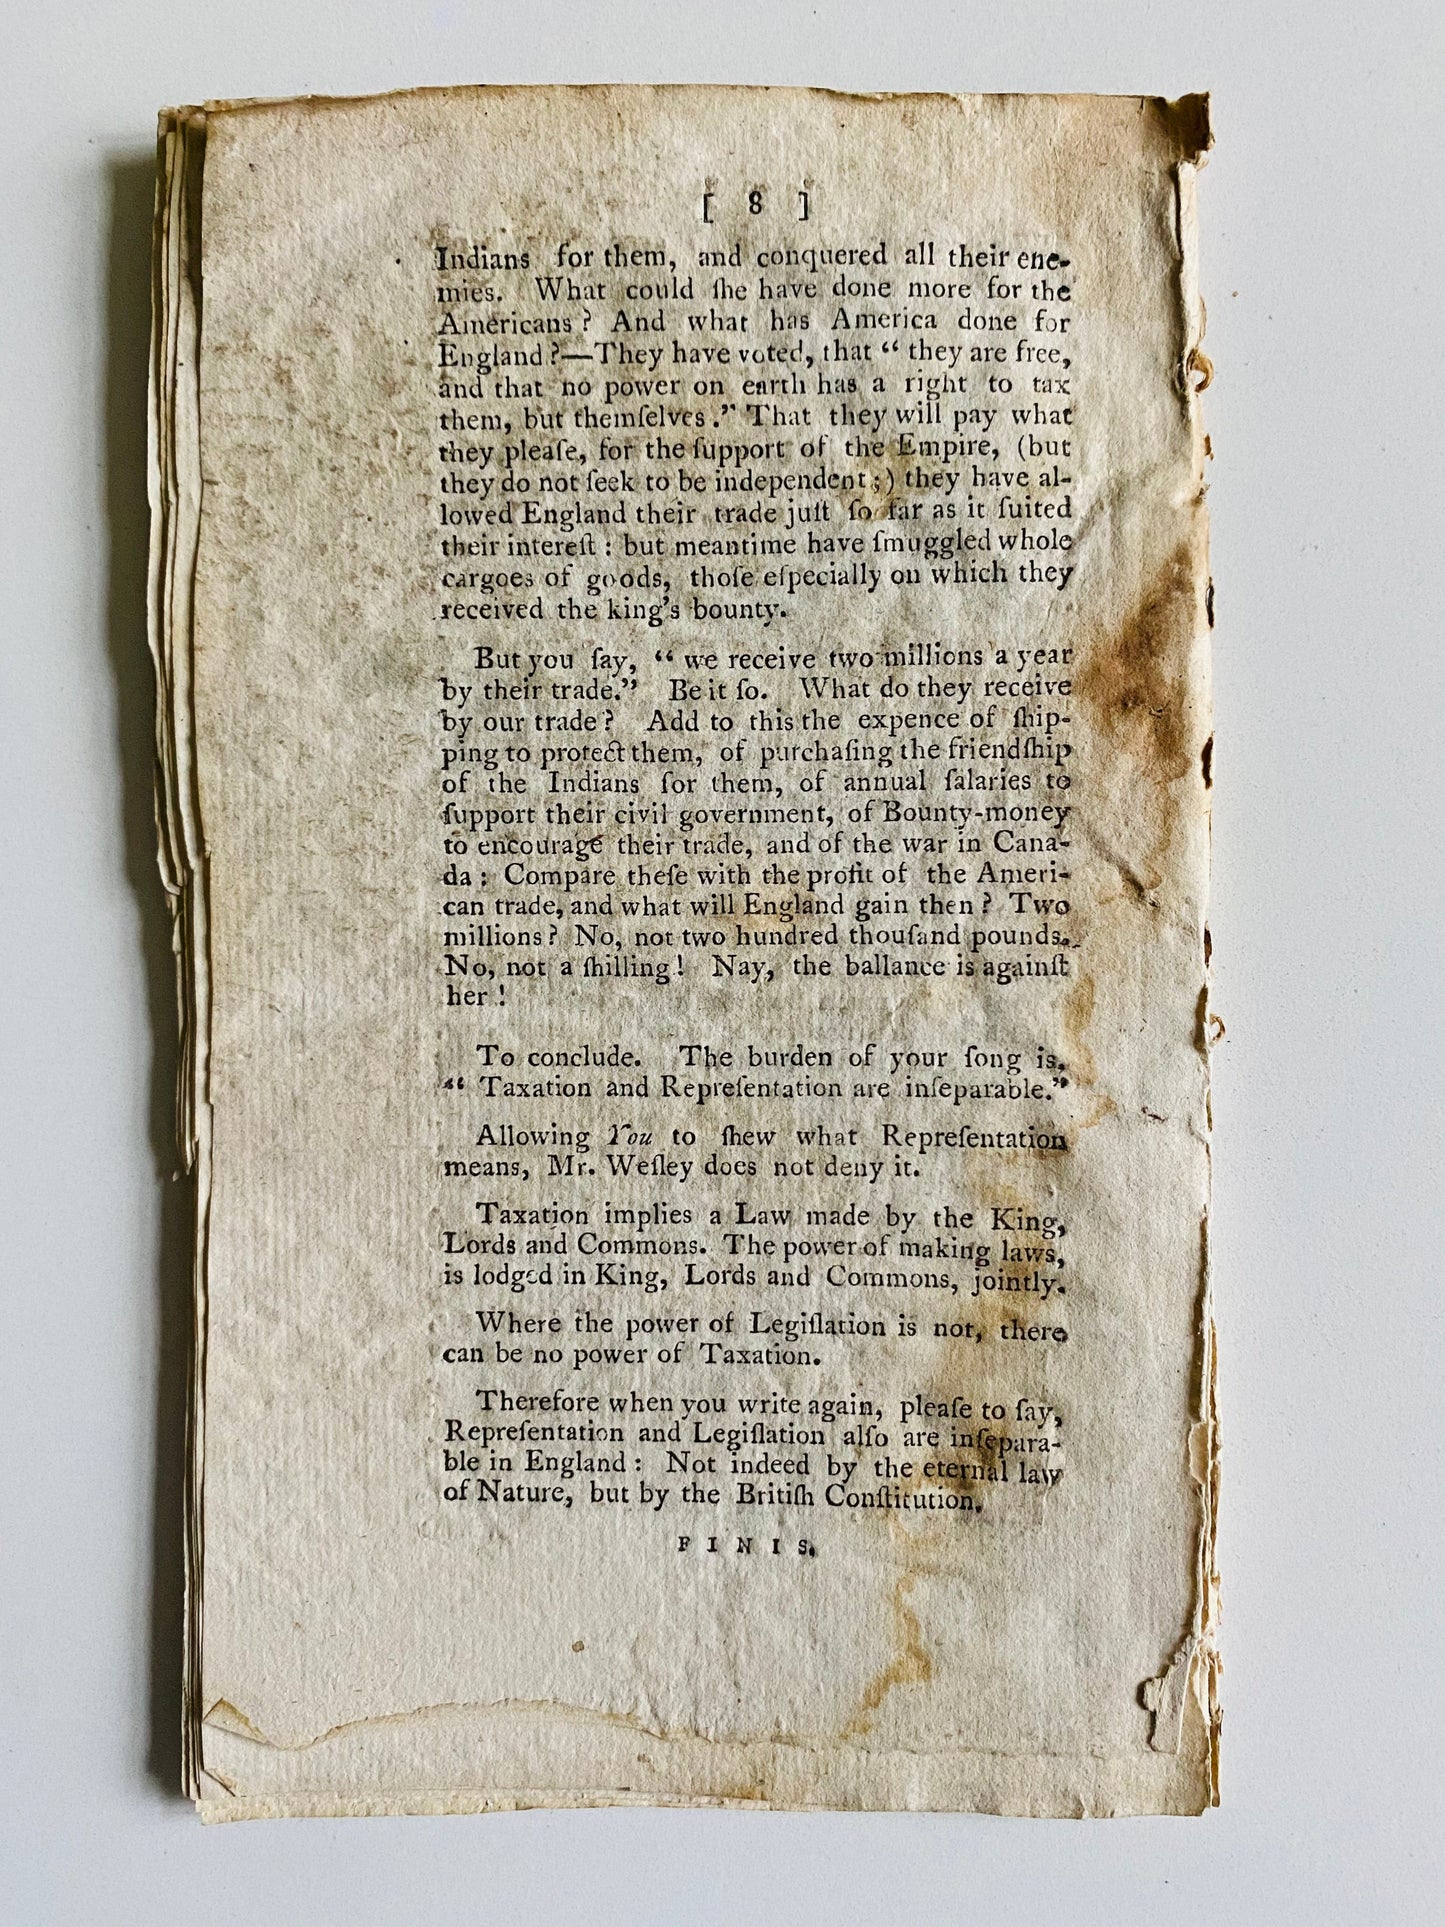 [ 8 ]
Indians for them, and conquered all their ene-
mies. What could ſhe have done more for the
Americans? And what has America done for
England?—They have voted, that “ they are free,
and that no power on earth has a right to tax
them, but themſelves.” That they will pay what
they pleaſe, for the ſupport of the Empire, (but
they do not ſeek to be independent;) they have al-
lowed England their trade juſt ſo far as it ſuited
their intereſt : but meantime have ſmuggled whole
cargoes of goods, thoſe eſpecially on which they
received the king’s bounty.
But you ſay, “ we receive two millions a year
by their trade.” Be it ſo. What do they receive
by our trade? Add to this the expence of ſhip-
ping to protect them, of purchaſing the friendſhip
of the Indians for them, of annual ſalaries to
ſupport their civil government, of Bounty-money
to encourage their trade, and of the war in Cana-
da : Compare theſe with the profit of the Ameri-
can trade, and what will England gain then? Two
millions? No, not two hundred thouſand pounds.
No, not a ſhilling! Nay, the ballance is againſt
her!
To conclude. The burden of your ſong is,
“ Taxation and Repreſentation are inſeparable.”
Allowing You to ſhew what Repreſentation
means, Mr. Weſley does not deny it.
Taxation implies a Law made by the King,
Lords and Commons. The power of making laws,
is lodged in King, Lords and Commons, jointly.
Where the power of Legiſlation is not, there
can be no power of Taxation.
Therefore when you write again, pleaſe to ſay,
Repreſentation and Legiſlation alſo are inſepara-
ble in England : Not indeed by the eternal law
of Nature, but by the Britiſh Conſtitution.
FINIS.